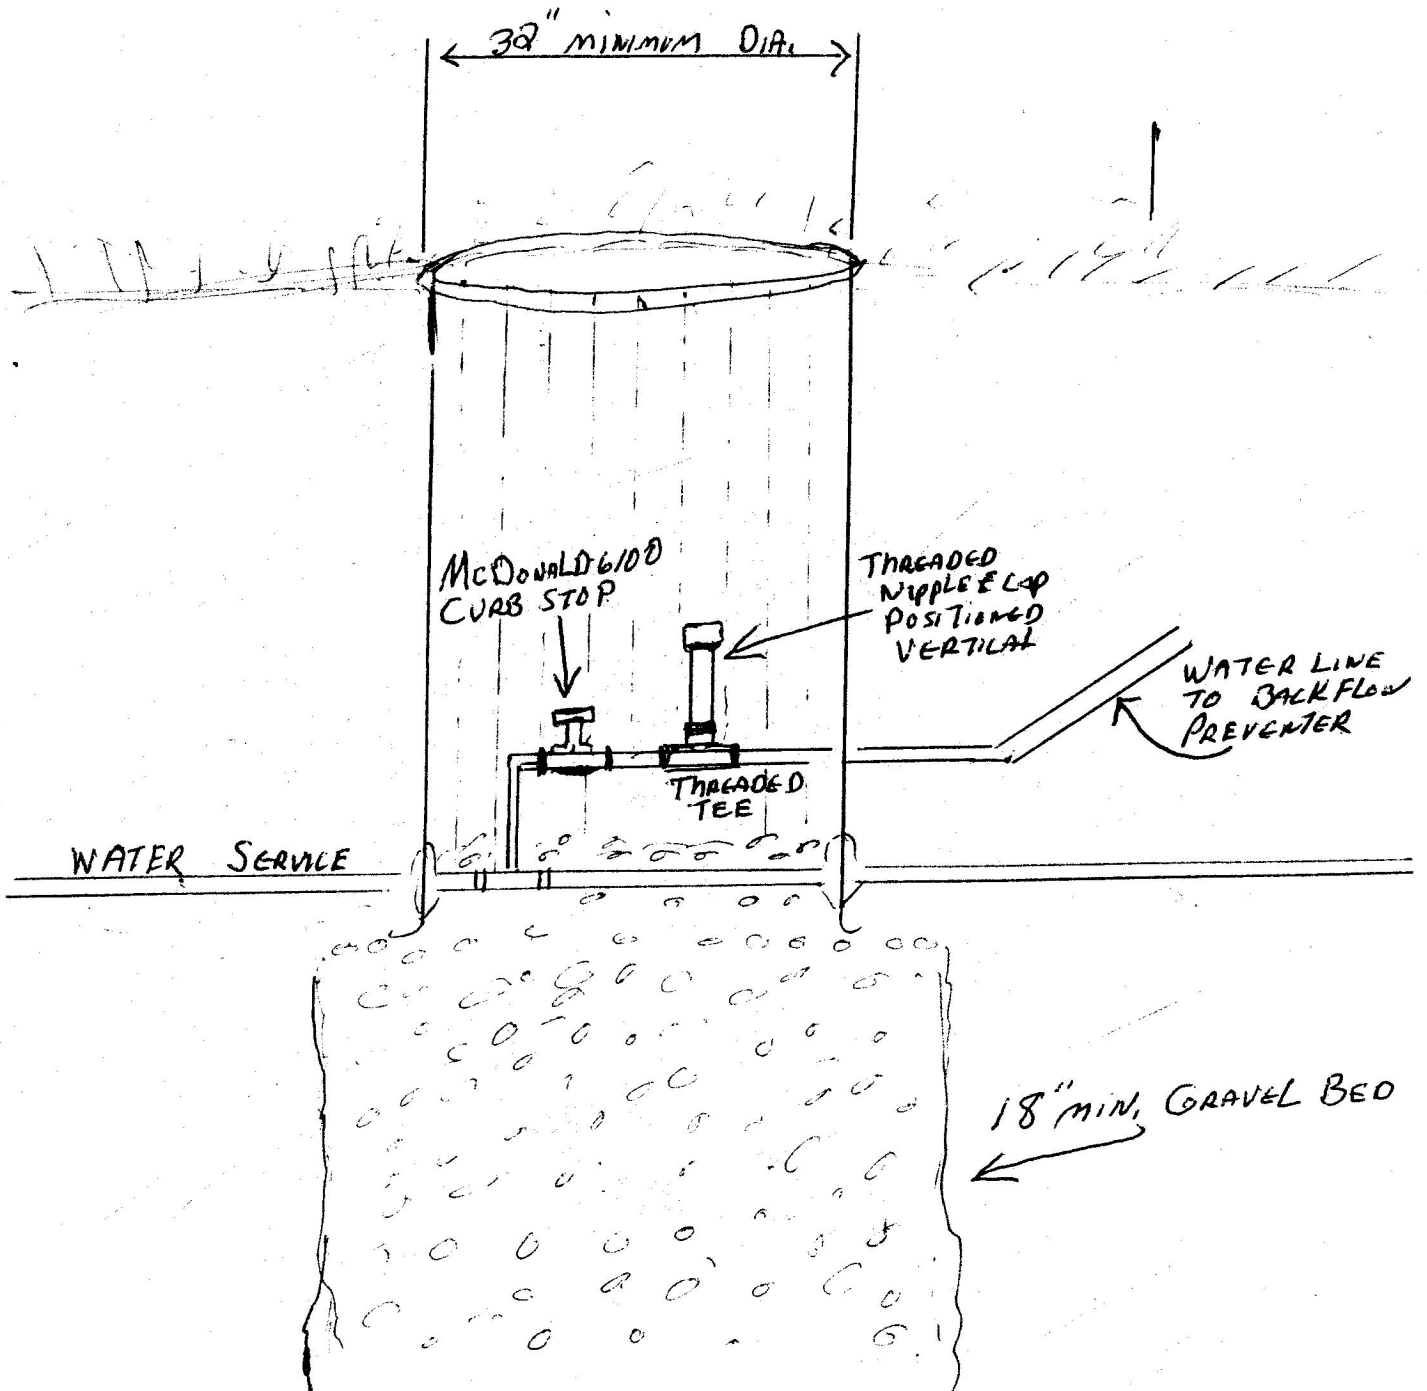 32" MINIMUM DIA.
McDONALD 6100
CURB STOP
THREADED
NIPPLE & CAP
POSITIONED
VERTICAL
WATER LINE
TO BACKFLOW
PREVENTER
THREADED
TEE
WATER SERVICE
18" MIN. GRAVEL BED